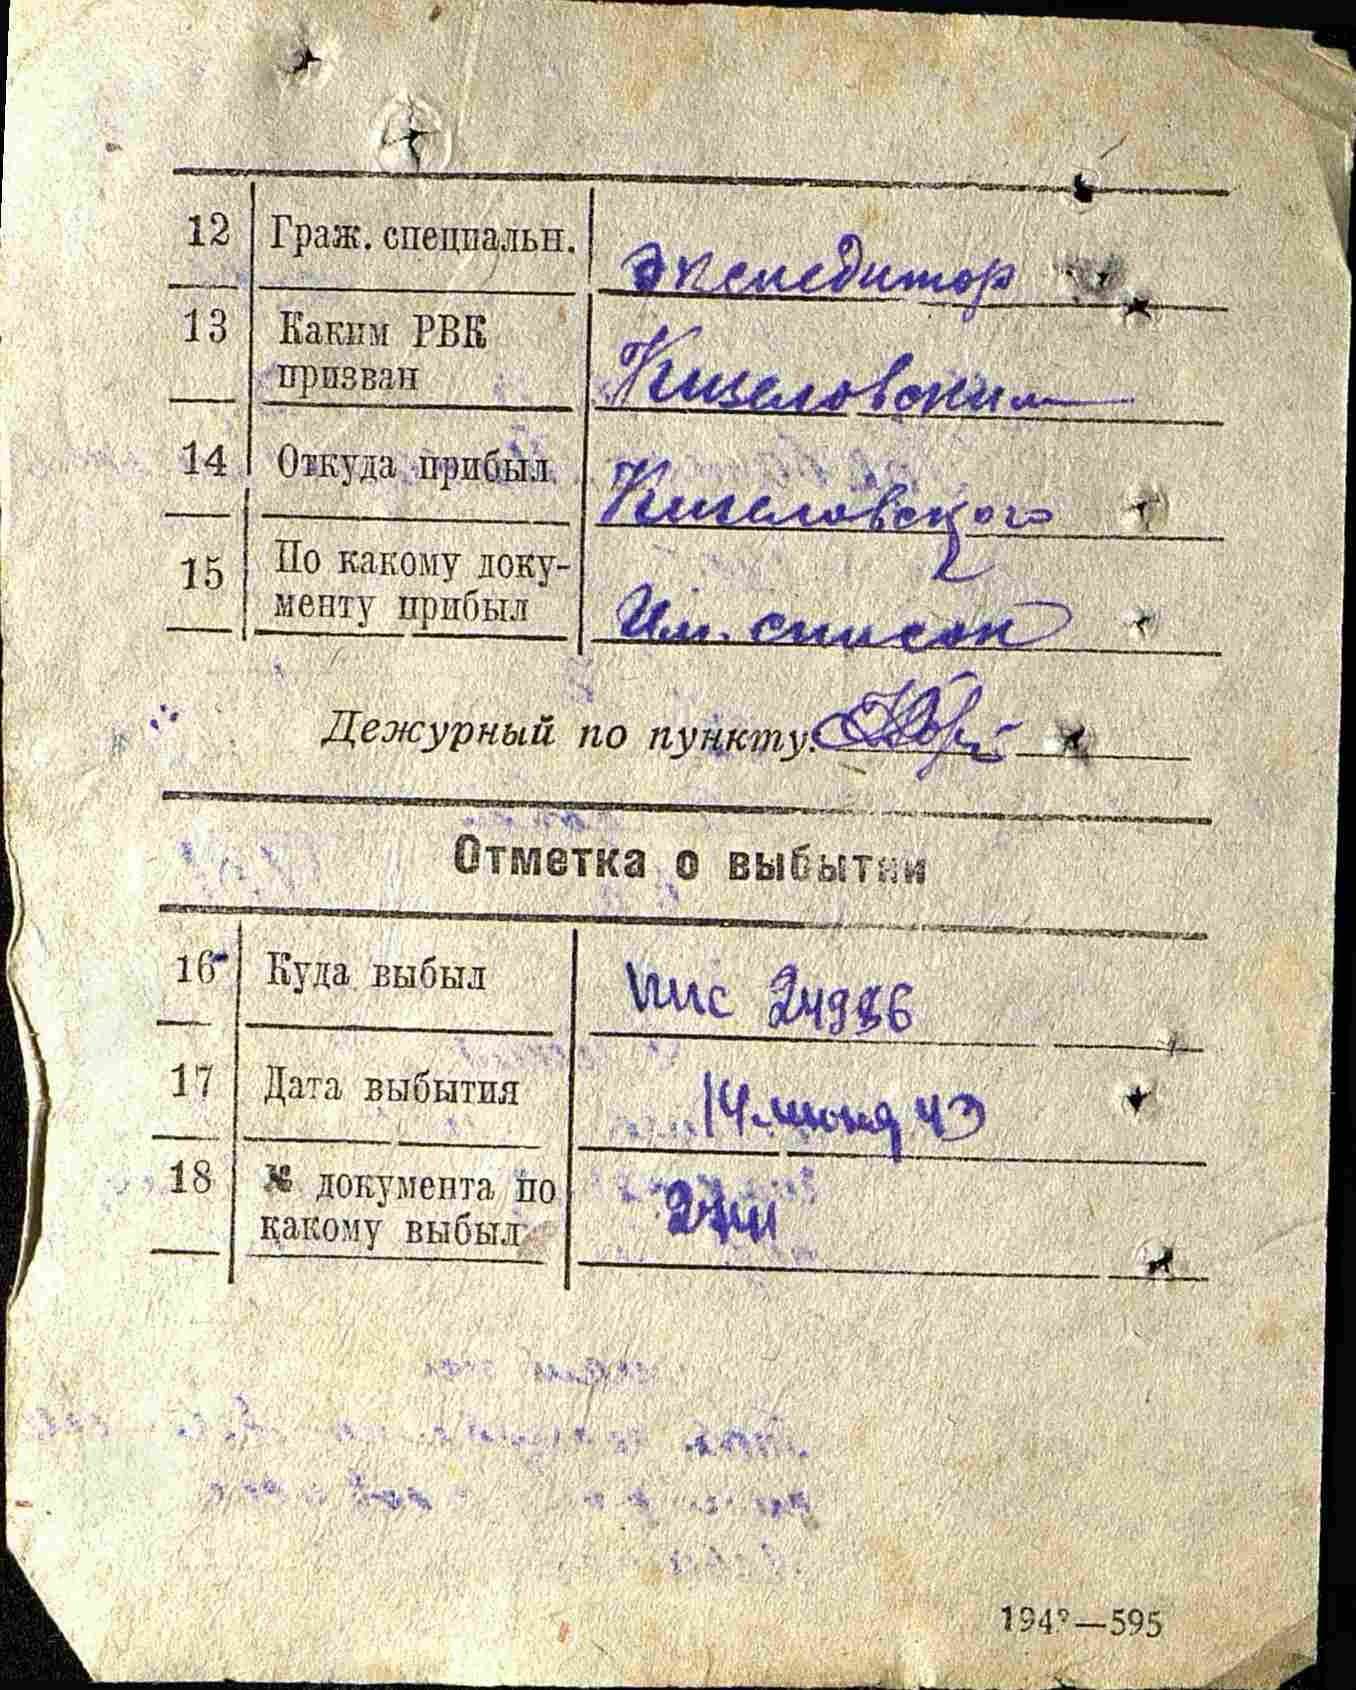 12 Граж. специальн. экспедитор
13 Каким РВК
призван Кизеловским
14 Откуда прибыл Кизеловского
15 По какому доку-
менту прибыл Им. список
Дежурный по пункту.
Отметка о выбытии
16 Куда выбыл ппс
17 Дата выбытия 14 июня 43
18 № документа по
какому выбыл